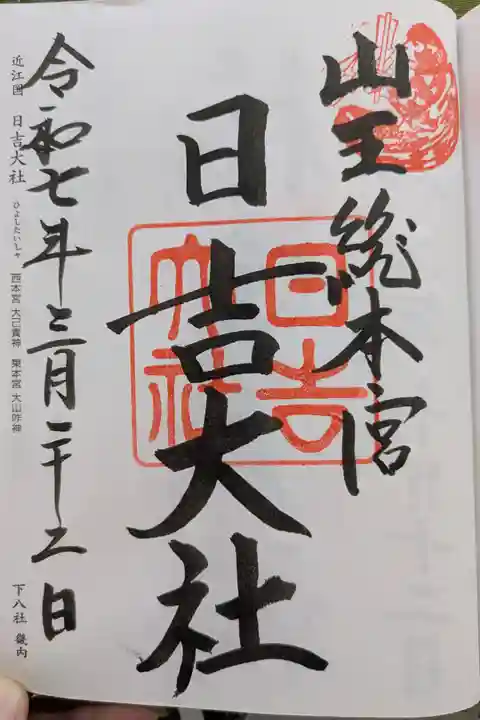 山王総本宮
日吉大社
日吉大社
令和七年三月二十二日
近江国 日吉大社 ひよしたいしゃ 西本宮 大己貴神 東本宮 大山咋神
下八社 畿内